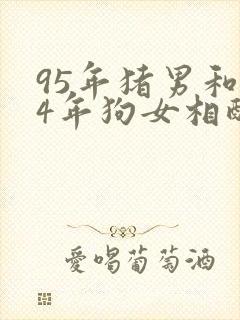 95年猪男和
4年狗女相
愛喝葡萄酒